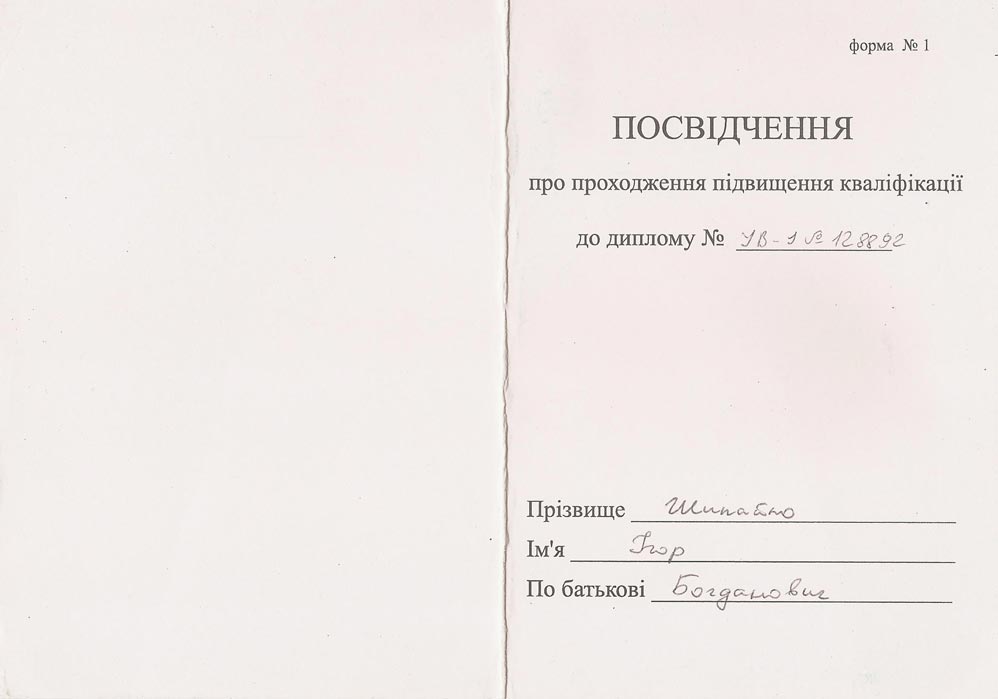 форма № 1
ПОСВІДЧЕННЯ
про проходження підвищення кваліфікації
до диплому № УВ-1 № 128892
Прізвище
Ім'я Ігор
По батькові Богданович